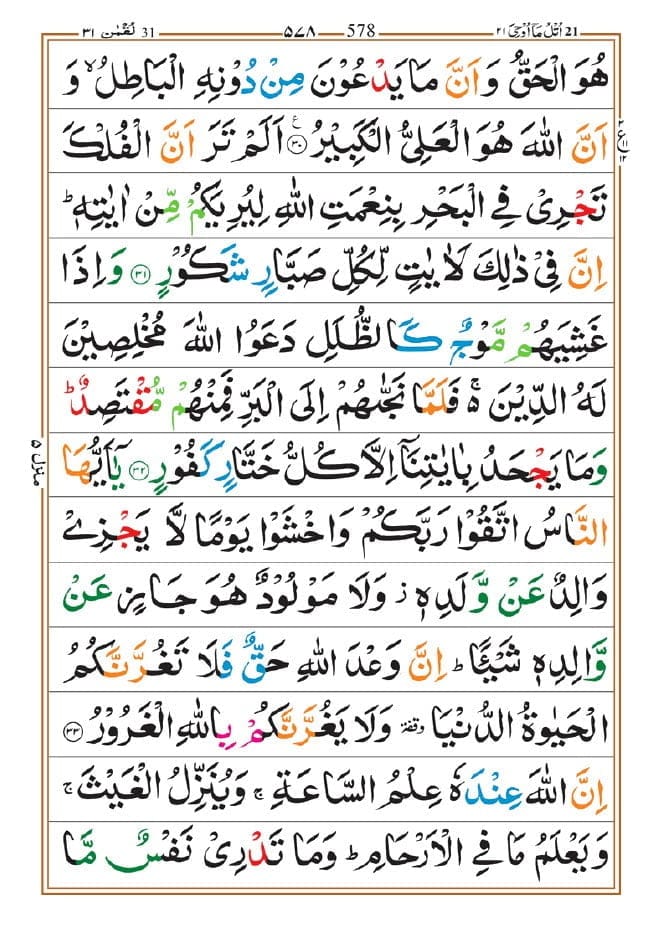 لقمٰن ٣١ 31 ٥٧٨ 578 اتل ما اوحی ٢١ 21
هُوَ الْحَقُّ وَاَنَّ مَا يَدْعُوْنَ مِنْ دُوْنِهِ الْبَاطِلُ ۙ وَ
اَنَّ اللّٰهَ هُوَ الْعَلِىُّ الْكَبِيْرُ ﴿٣٠﴾ ع اَلَمْ تَرَ اَنَّ الْفُلْكَ
تَجْرِىْ فِى الْبَحْرِ بِنِعْمَتِ اللّٰهِ لِيُرِيَكُمْ مِّنْ اٰيٰتِهٖ ؕ
اِنَّ فِىْ ذٰلِكَ لَاٰيٰتٍ لِّكُلِّ صَبَّارٍ شَكُوْرٍ ﴿٣١﴾ وَاِذَا
غَشِيَهُمْ مَّوْجٌ كَالظُّلَلِ دَعَوُا اللّٰهَ مُخْلِصِيْنَ
لَهُ الدِّيْنَ ۚ۬ فَلَمَّا نَجّٰىهُمْ اِلَى الْبَرِّ فَمِنْهُمْ مُّقْتَصِدٌ ؕ
وَمَا يَجْحَدُ بِاٰيٰتِنَاۤ اِلَّا كُلُّ خَتَّارٍ كَفُوْرٍ ﴿٣٢﴾ يٰۤاَيُّهَا
النَّاسُ اتَّقُوْا رَبَّكُمْ وَاخْشَوْا يَوْمًا لَّا يَجْزِىْ
وَالِدٌ عَنْ وَّلَدِهٖ ز وَلَا مَوْلُوْدٌ هُوَ جَازٍ عَنْ
وَّالِدِهٖ شَيْـًٔا ؕ اِنَّ وَعْدَ اللّٰهِ حَقٌّ فَلَا تَغُرَّنَّكُمُ
الْحَيٰوةُ الدُّنْيَا وقفة وَلَا يَغُرَّنَّكُمْ بِاللّٰهِ الْغَرُوْرُ ﴿٣٣﴾
اِنَّ اللّٰهَ عِنْدَهٗ عِلْمُ السَّاعَةِ ۚ وَيُنَزِّلُ الْغَيْثَ ۚ
وَيَعْلَمُ مَا فِى الْاَرْحَامِ ؕ وَمَا تَدْرِىْ نَفْسٌ مَّا
منزل ٥